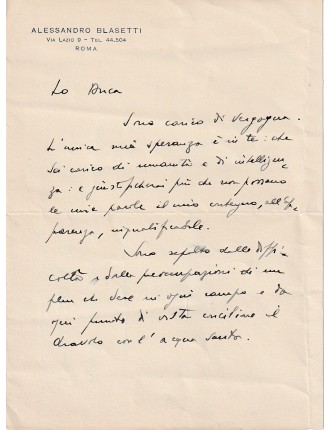 ALESSANDRO BLASETTI
VIA LAZIO 9 - TEL. 44.504
ROMA
Lo Duca
Sono carico di vergogna.
L'unica mia speranza è in te: che
sei carico di umanità e di intelligen
za: e giustificherai più che non possano
le mie parole il mio contegno, all'ap
parenza, inqualificabile.
Sono sepolto dalle diffi
coltà e dalle preoccupazioni di un
film che deve in ogni campo e da
ogni punto di vista conciliare il
diavolo con l'acqua santa.